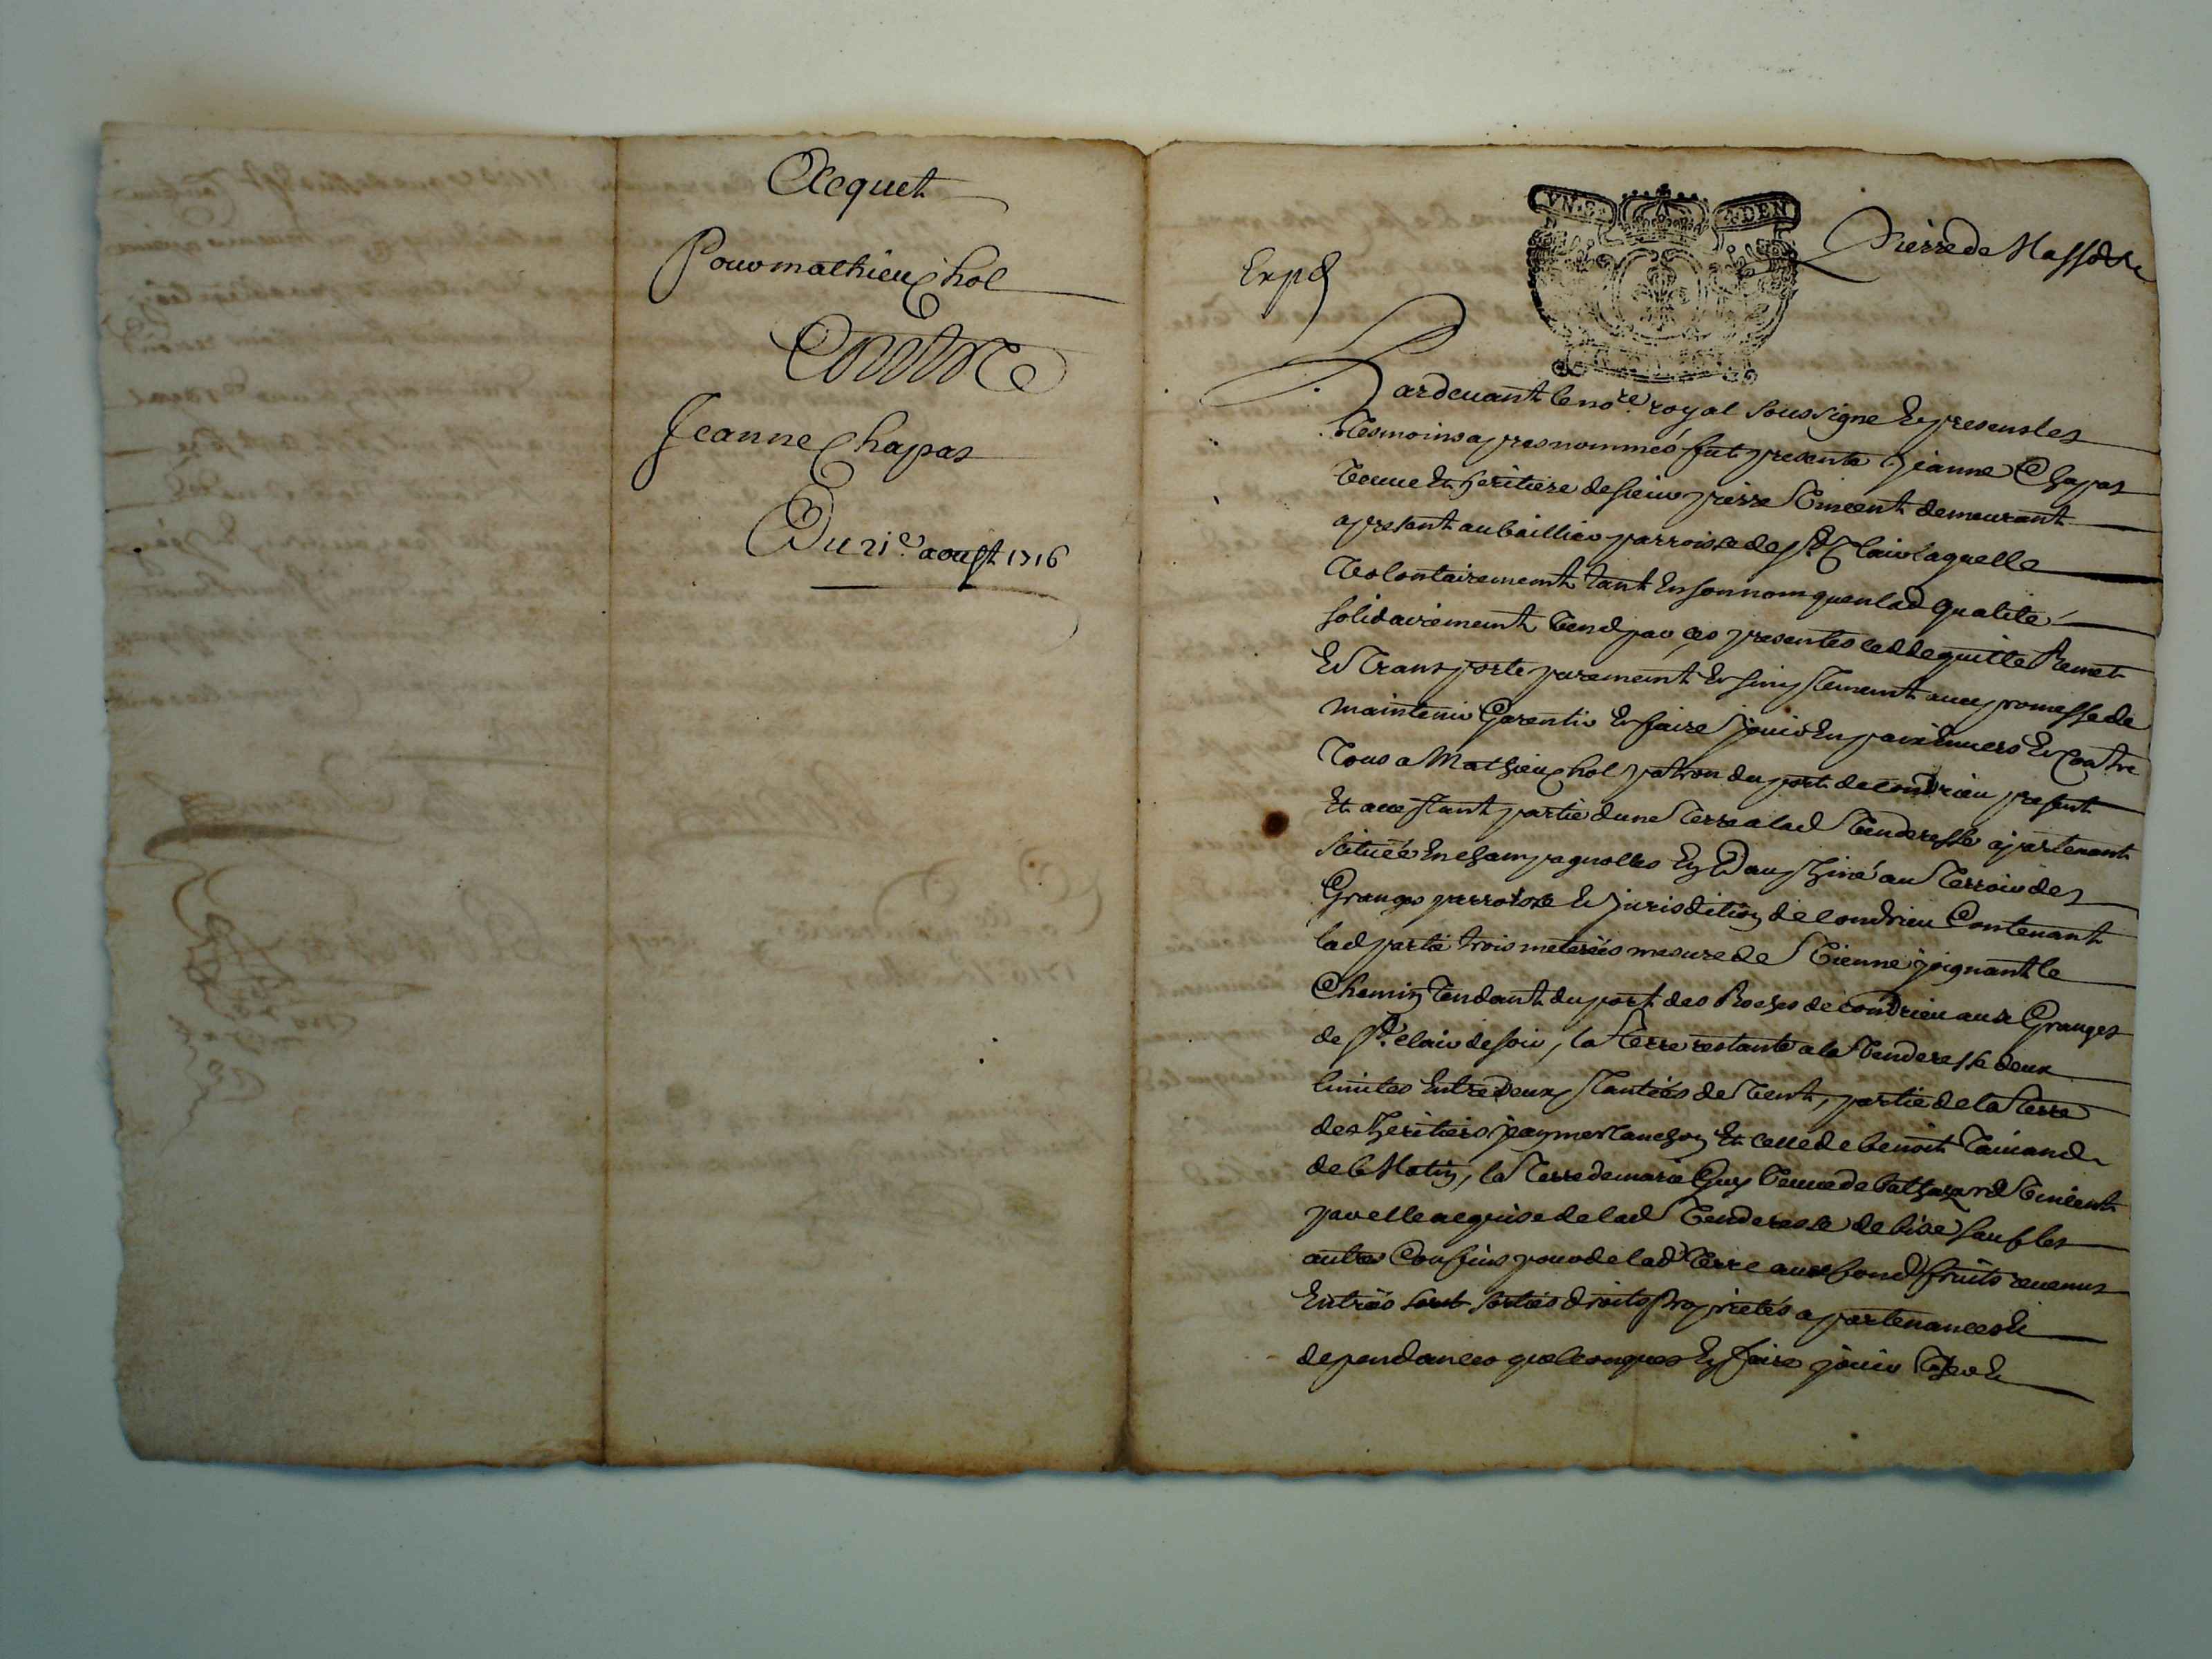 Acquet
Pour mathieu chol
Contre
Jeanne Chapas
Du 21e aoust 1716
Expd
VN S 4 DEN
Pierre de
Pardevant le nore royal soussigne Et presens les
tesmoins apres nommés fut presente jeanne Chapas
veuve Et heritiere de sieur pierre vincent demeurant
apresant au paroisse de St Clair laquelle
volontairement tant En son nom quen lad qualité
solidairement vend par ces presentes cedde quitte Remet
Et transporte purement Et simplement avec promesse de
maintenir Garentir Et faire jouir En paix Envers Et Contre
tous a Mathieu chol patron du port de condrieu present
Et acceptant partie dune terre a lad venderesse apartenant
scituée En champagnolles En Dauphiné au terroir des
Granges parroisse Et jurisdition de condrieu Contenant
lad partie trois meterées mesure de vienne joignant le
Chemin tendant du port des Roches de condrieu aux Granges
de St clair de soir, la terre restante a la venderesse deux
limites Entredeux plantées de vent, partie de la terre
des heritiers Et celle de benoit
de Matin, la terre de marie Guy veuve de balthazard vincent
par elle acquise de lad venderesse de bise sauf les
autres Confins pour de lad terre avec fond fruits revenus
Entrées sorties droits proprietés apartenances Et
dependances quelconques En faire jouir